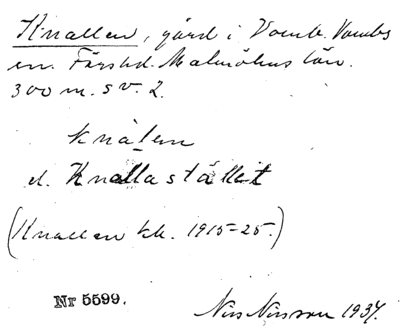 Knallen, gård i Vomb. Vombs
sn. Färs hd. Malmöhus län.
300 m. s v. 2.
knalen
el. Knallastället
(Knallen kb. 1915-25.)
Nr 5599.
Nils Nilsson 1934.